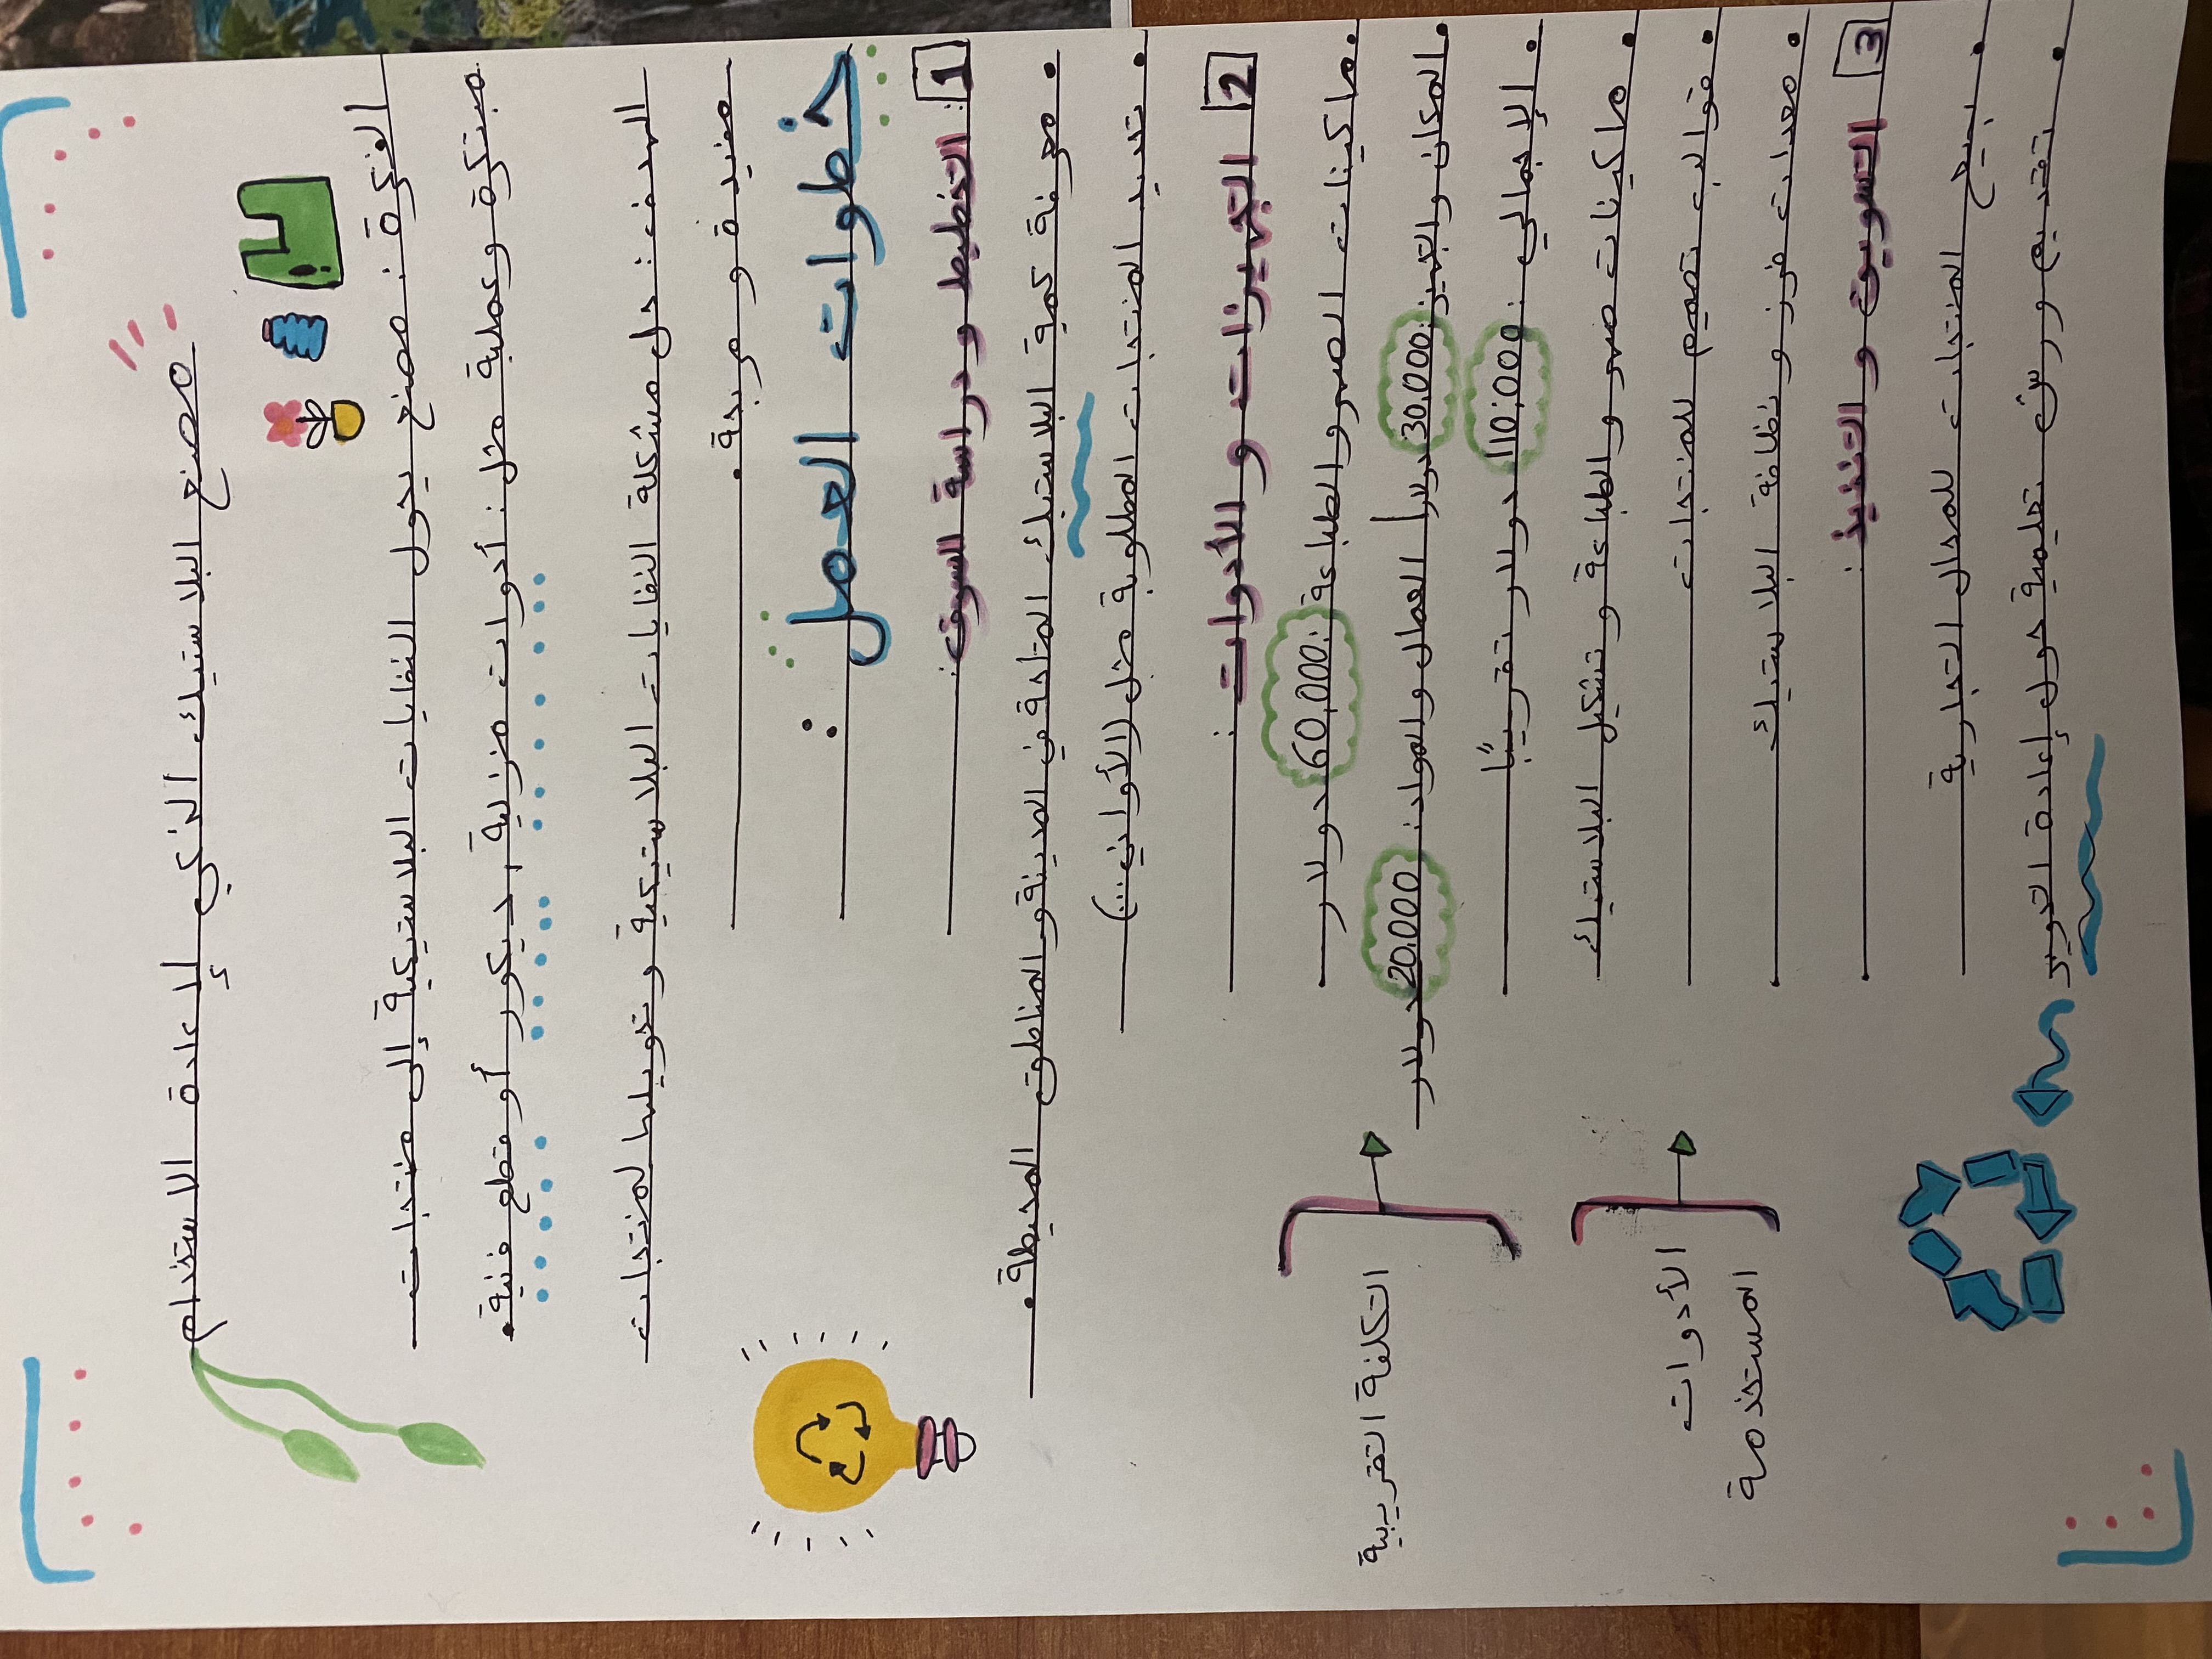 مصنع البلاستيك الذكي لإعادة الاستخدام
الفكرة: مصنع يحول النفايات البلاستيكية إلى منتجات
مبتكرة وعملية مثل: أدوات منزلية، ديكور أو قطع فنية.
الهدف: حل مشكلة النفايات البلاستيكية وتحويلها لمنتجات
مفيدة ومربحة.
خطوات العمل:
1 التخطيط ودراسة السوق:
• معرفة كمية البلاستيك المتاحة في المدينة والمناطق المحيطة.
• تحديد المنتجات المطلوبة مثل (الأواني...)
2 التجهيزات والأدوات:
• ماكينات الصهر والطباعة: 60,000 دولار
• المكان والتجهيز: 30.000 دولار | العمال والمواد: 20.000 دولار
• الإجمالي: 110.000 دولار تقريبًا
التكلفة التقريبية
• ماكينات صهر والطباعة وتشكيل البلاستيك
• قوالب تصميم للمنتجات
• معدات فرز ونظافة البلاستيك
الأدوات
المستخدمة
3 التسويق والتنفيذ:
• بيع المنتجات للمحال التجارية
• تقديم ورش تعليمية حول إعادة التدوير